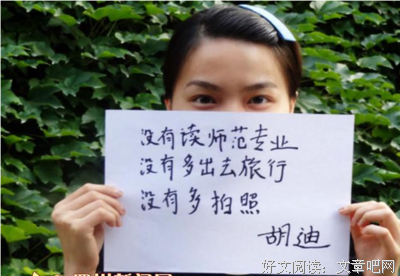 没有读师范专业
没有多出去旅行
没有多拍照
胡迪
好文阅读：文章吧网